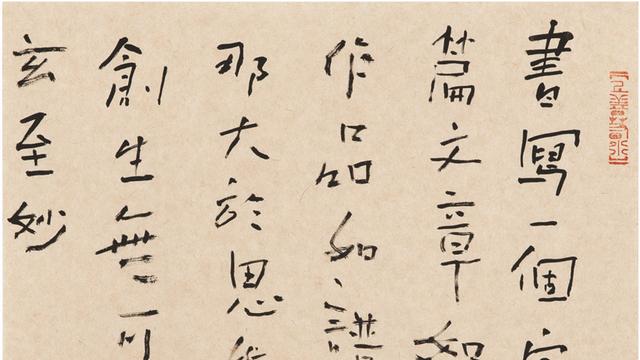 書寫一個
篇文章
作品如
那大於思
創生無
玄至妙